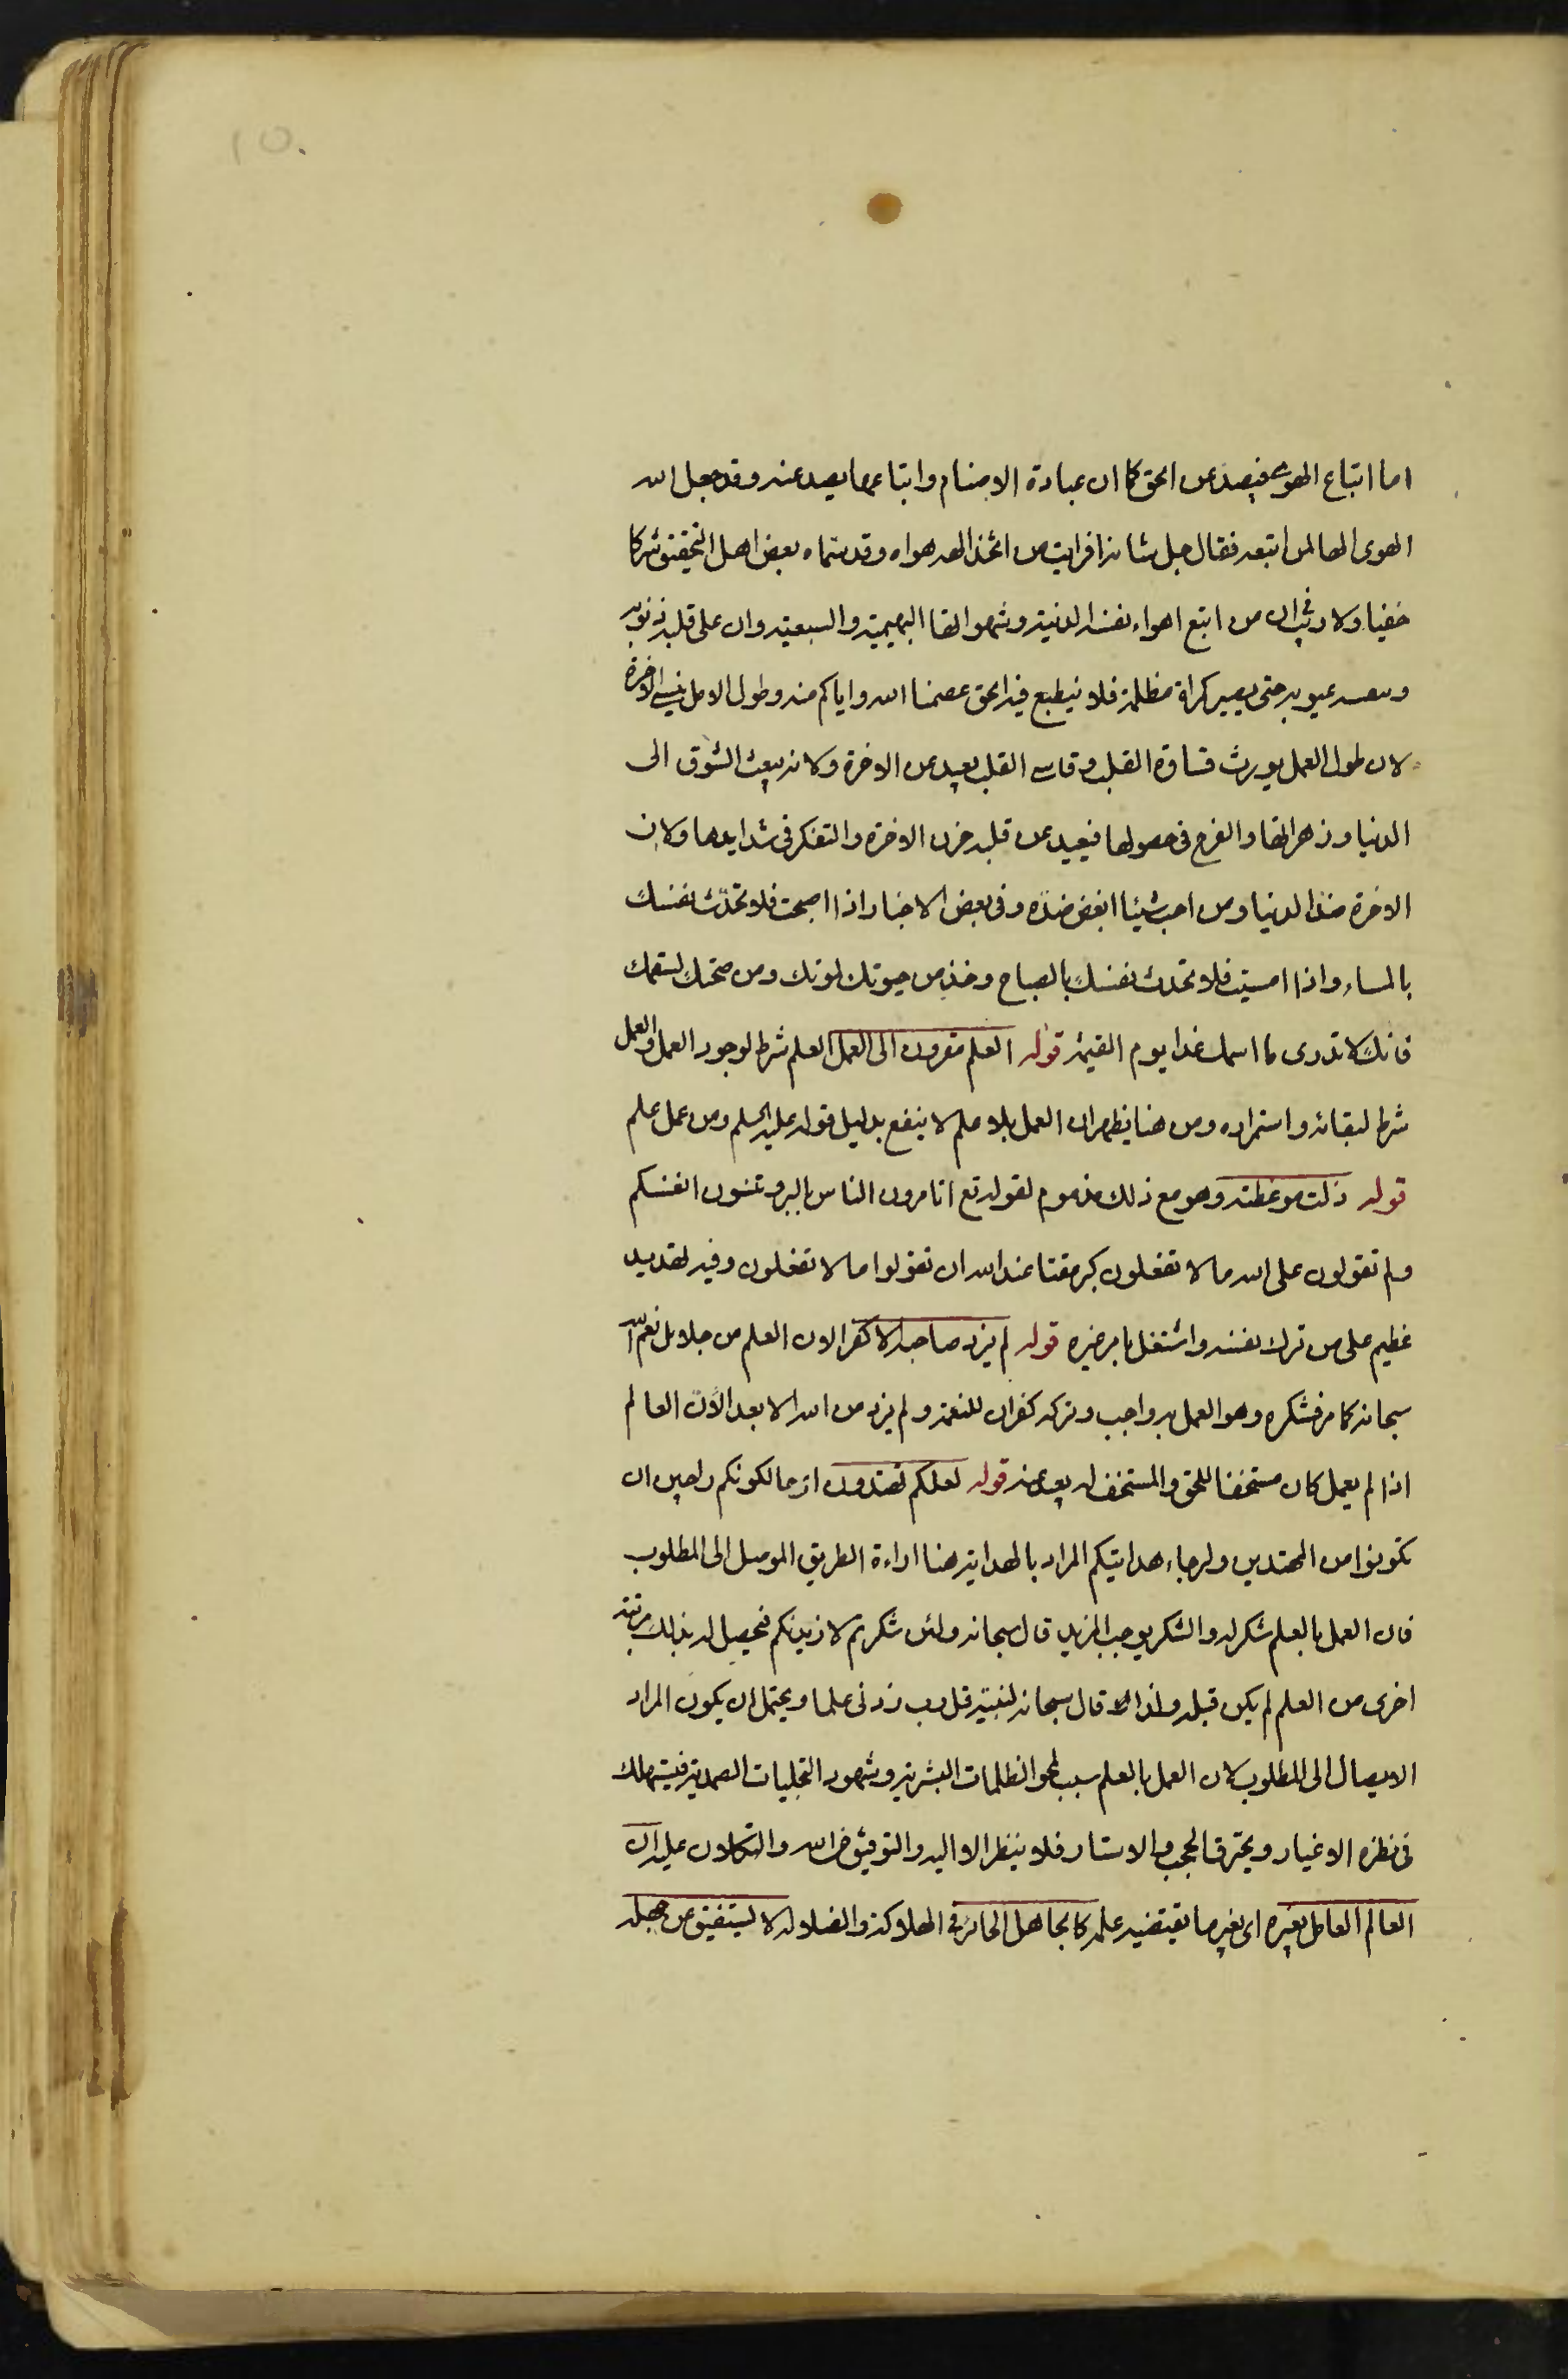 ١٥٠
اما اتباع الهوى فيصد عن الحق كما ان عبادة الاصنام واتباعها يصد عنه وقد جعل الله
الهوى الها لمن اتبعه فقال جل شانه افرايت من اتخذ الهه هواه وقد سماه بعض اهل التحقيق شركا
خفيا ولا ريب في ان من اتبع اهواء نفسه الدنية وشهواتها البهيمية والسبعية ران على قلبه ذنوبه
عيوبه حتى يصير كمراة مظلمة فلا ينطبع فيه الحق عصمنا الله واياكم منه وطول الامل ينسي الاخرة
لان طول العمل يورث قساوة القلب وقاسي القلب بعيد من الاخرة ولانه يبعث الشوق الى
الدنيا وزهراتها والفرح في حصولها فيبعد عن قلبه حزن الاخرة والتفكر في شدايدها ولان
الاخرة ضد الدنيا ومن احب شيئا ابغض ضده وفي بعض الاخبار اذا اصبحت فلا تحدث نفسك
بالمساء واذا امسيت فلا تحدث نفسك بالصباح وخذ من حيوتك لموتك ومن صحتك لسقمك
فانك لا تدرى ما اسمك غدا يوم القيمة قوله العلم مقرون الى العمل العلم شرط لوجود العمل والعمل
شرط لبقائه واستمراره ومن هنا يظهر ان العمل بلا علم لا ينفع بدليل قوله عليه السلم ومن عمل علم
قوله زلت موعظته وهو مع ذلك مذموم لقوله تع اتامرون الناس بالبر وتنسون انفسكم
ولم تقولون على الله ما لا تفعلون كبر مقتا عند الله ان تقولوا ما لا تفعلون وفيه تهديد
عظيم على من ترك نفسه واشتغل بامر غيره قوله لم يزد صاحبه الا كفرا لان العلم من جلايل نعم الله
سبحانه كما مر فشكره وهو العمل به واجب وتركه كفران للنعمة ولم يزد من الله الا بعدا لان العالم
اذا لم يعمل كان مستخفا للحق والمستخف له بعيد منه قوله لعلكم تهتدون اي حالكونكم راجين ان
تكونوا من المهتدين ولرجاء هدايتكم المراد بالهداية هنا اراءة الطريق الموصل الى المطلوب
فان العمل بالعلم شكر له والشكر يوجب المزيد قال سبحانه ولئن شكرتم لازيدنكم فيحصل له بذلك مرتبة
اخرى من العلم لم يكن قبله ولذا قال سبحانه لنبيه قل رب زدنى علما ويحتمل ان يكون المراد
الايصال الى المطلوب لان العمل بالعلم سبب لمحو الظلمات البشرية وشهود التجليات الصمدية فيستهلك
في نظره الاغيار ويحترق الحجب والاستار فلا ينظر الا اليه والتوفيق من الله والتكلان عليه ان
العالم العامل بغيره اى بغير ما يقتضيه علمه كالجاهل الحائر في الهلاكة والضلالة لا يستفيق عن جهله